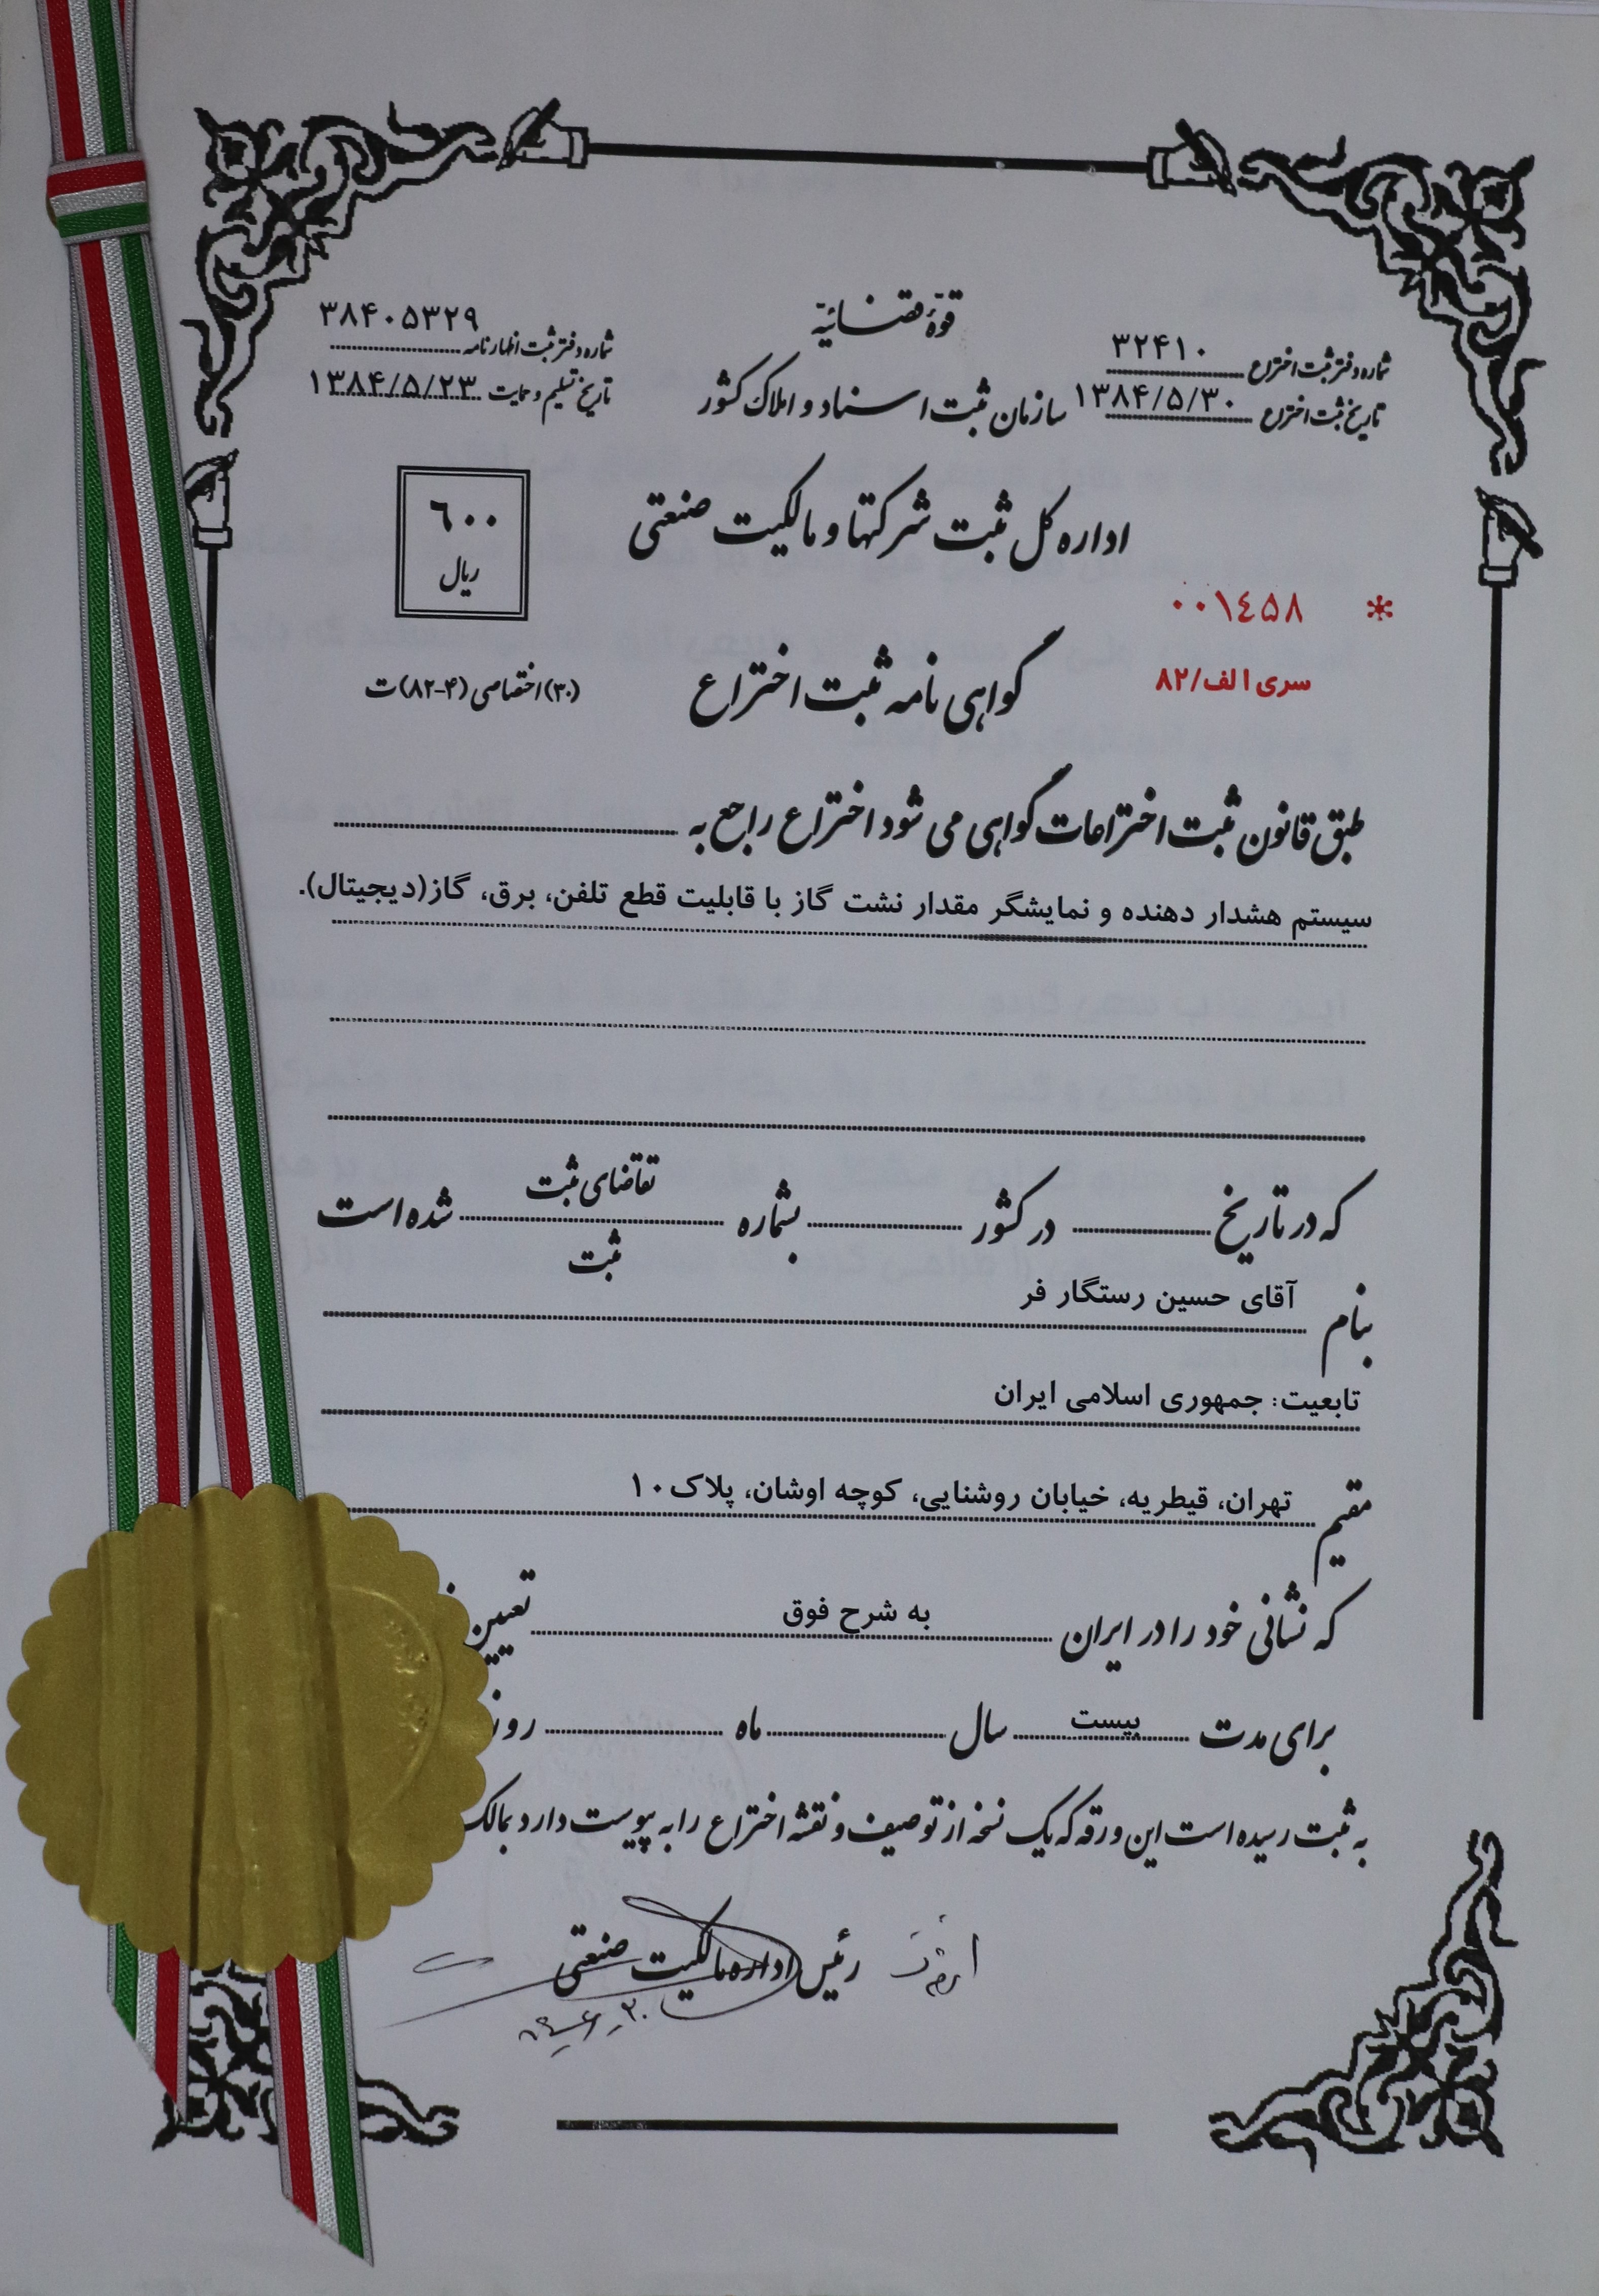 قوهٔ قضائیّه
سازمان ثبت اسناد و املاک کشور
اداره کل ثبت شرکتها و مالکیت صنعتی
شماره دفتر ثبت اختراع ۳۲۴۱۰
تاریخ ثبت اختراع ۱۳۸۴/۵/۳۰
شماره دفتر ثبت اظهارنامه ۳۸۴۰۵۳۲۹
تاریخ تسلیم و حمایت ۱۳۸۴/۵/۲۳
۶۰۰
ریال
* ۰۰۱۴۵۸
سری الف/۸۲
گواهی نامه ثبت اختراع
(۳۰) اختصاصی (۴-۸۲) ت
طبق قانون ثبت اختراعات گواهی می شود اختراع راجع به
سیستم هشدار دهنده و نمایشگر مقدار نشت گاز با قابلیت قطع تلفن، برق، گاز(دیجیتال).
که در تاریخ در کشور بشماره تقاضای ثبت شده است
ثبت
بنام آقای حسین رستگار فر
تابعیت: جمهوری اسلامی ایران
مقیم تهران، قیطریه، خیابان روشنایی، کوچه اوشان، پلاک ۱۰
که نشانی خود را در ایران به شرح فوق تعیین
برای مدت بیست سال ماه روز
به ثبت رسیده است این ورقه که یک نسخه از توصیف و نقشه اختراع را به پیوست دارد بمالک
رئیس اداره مالکیت صنعتی